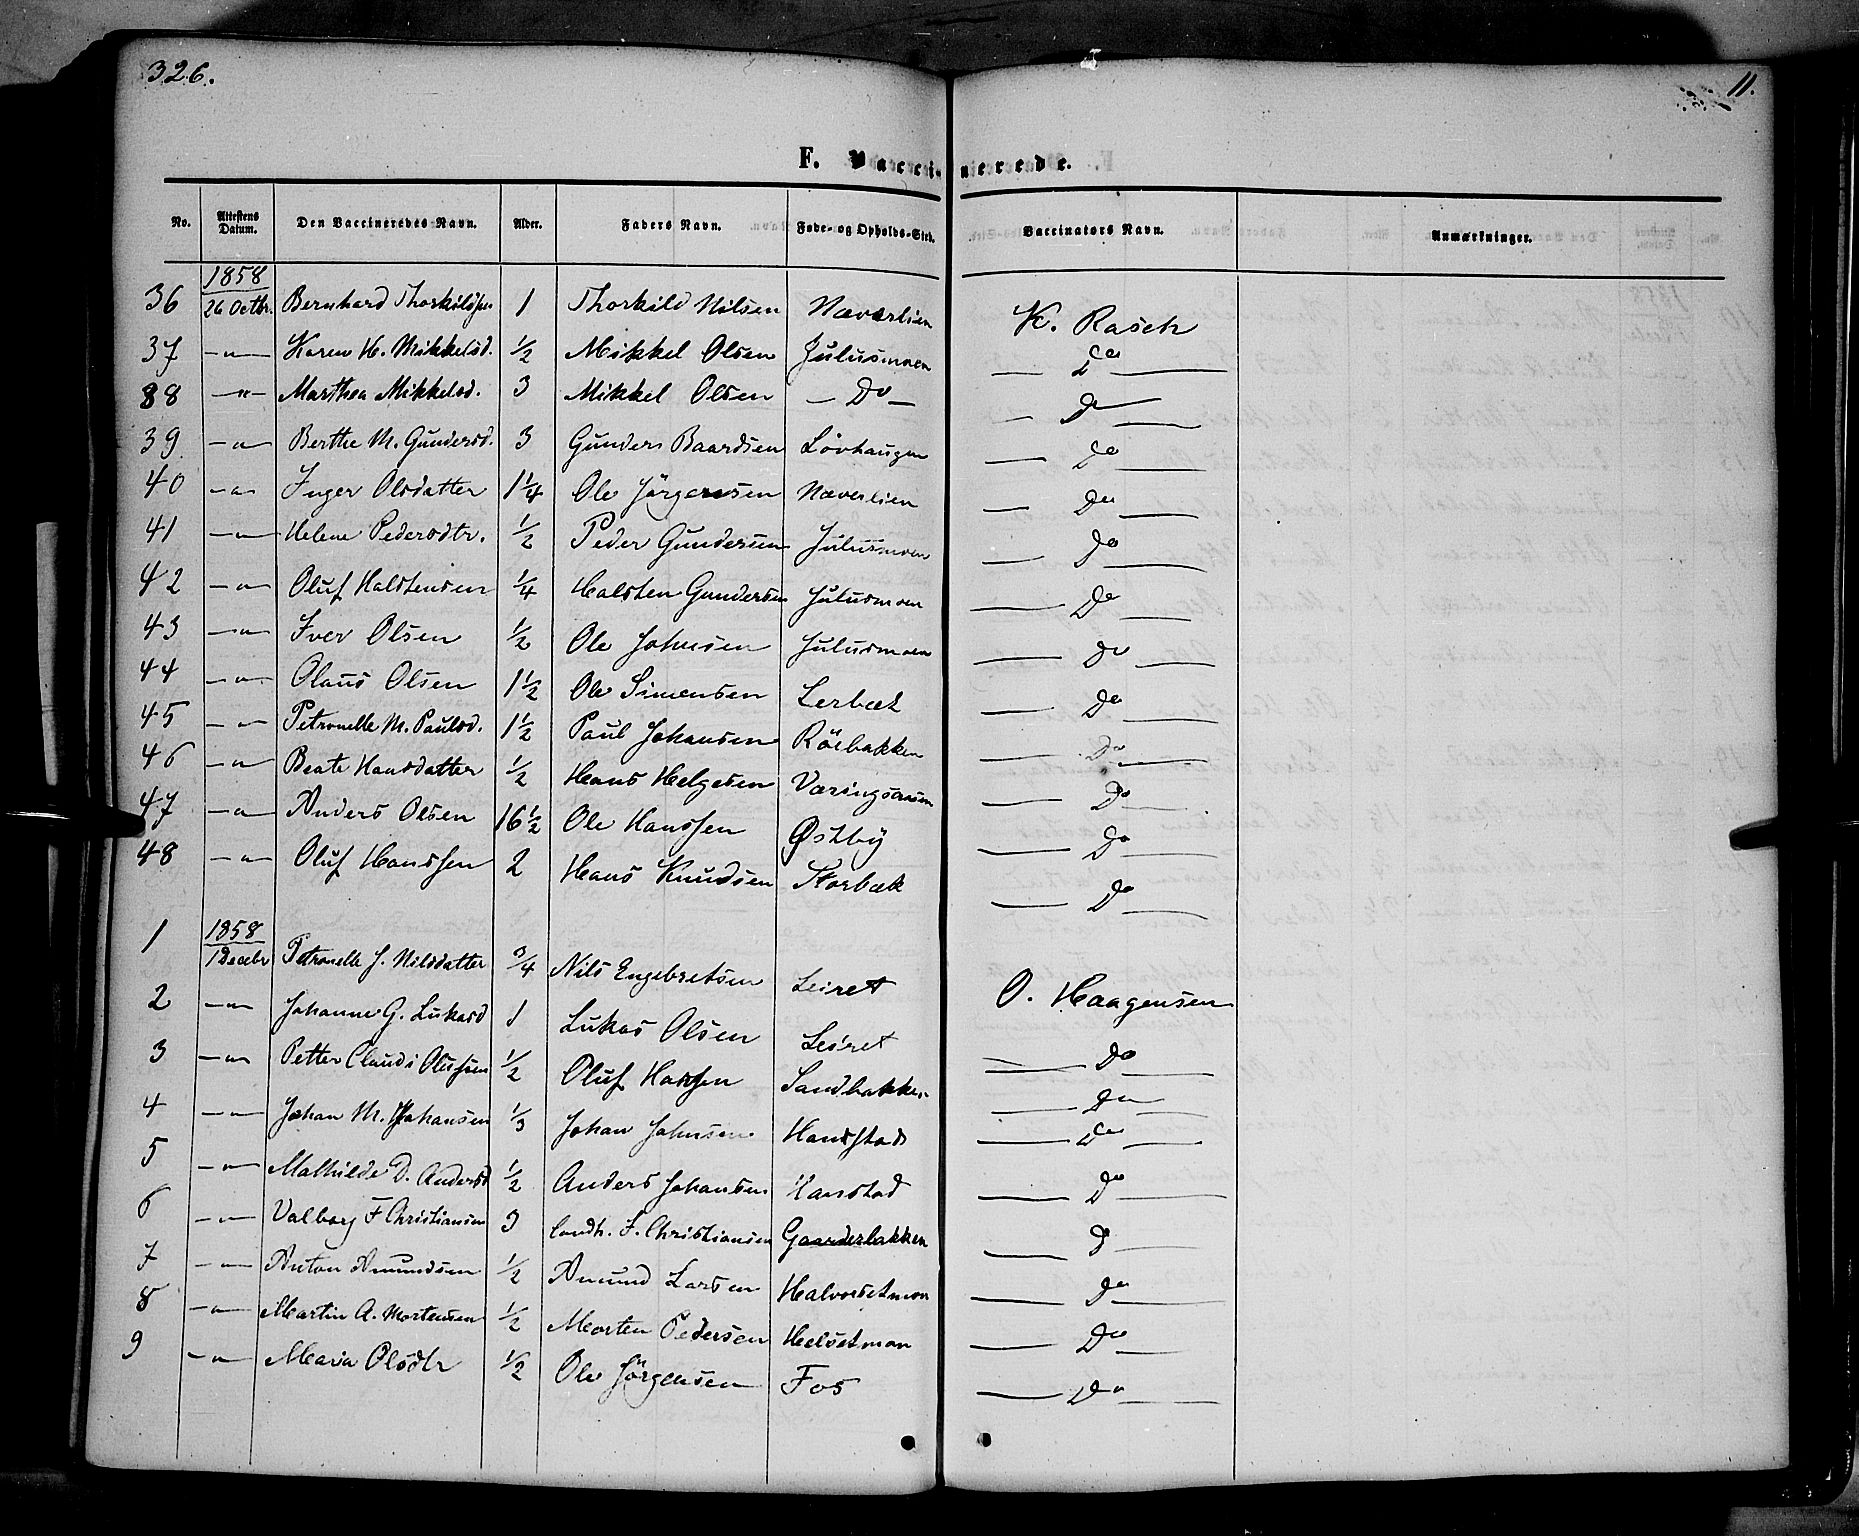 326.
11.
F. Vaccinerede.
No. Attestens Datum. Den Vaccineredes Navn. Alder. Faders Navn. Føde- og Opholds-Sted. Vaccinators Navn. Anmærkninger.
1858
36 26 Octbr. Bernhard Thorkildsen 1 Thorkild Nilsen Næverlien K. Rasch
37 —"— Karen H. Mikkelsd. 1/2 Mikkel Olsen Julusmoen — Do —
38 —"— Marthea Mikkelsd. 3 Mikkel Olsen — Do — — Do —
39 —"— Berthe M. Gundersd. 3 Gunders Baardsen Lövhaugen — Do —
40 —"— Inger Olsdatter 1 1/4 Ole Jörgensen Næverlien — Do —
41 —"— Helene Pedersdtr. 1/2 Peder Gundersen Julusmoen — Do —
42 —"— Oluf Halstensen 1/4 Halsten Gundersen Julusmoen — Do —
43 —"— Iver Olsen 1/2 Ole Johnsen Julusmoen — Do —
44 —"— Olaus Olsen 1 1/2 Ole Simensen Lerbæk — Do —
45 —"— Petronelle M. Paulsd. 1 1/2 Paul Johansen Röebakken — Do —
46 —"— Beate Hansdatter 1/2 Hans Helgesen Væringsaasen — Do —
47 —"— Anders Olsen 16 1/2 Ole Hanssen Østby — Do —
48 —"— Oluf Hanssen 2 Hans Knudsen Storbæk — Do —
1858
1 1 Decebr Petronelle J. Nilsdatter 3/4 Nils Engebretsen Leiret O. Haagensen
2 —"— Johanne G. Lukasd 1 Lukas Olsen Leiret — Do —
3 —"— Petter Claudi Olufsen 1/2 Oluf Hanssen Sandbakken — Do —
4 —"— Johan M. Johansen 1/3 Johan Johnsen Hansstad — Do —
5 —"— Mathilde D. Andersd 1/2 Anders Johansen Hanstad — Do —
6 —"— Valborg F Christiansen 3 Landh. F. Christiansen Gaarderbakken — Do —
7 —"— Anton Amundsen 1/2 Amund Larsen Halvorsetmoen — Do —
8 —"— Martin A. Mortensen 1/2 Morten Pedersen Helsetmoen — Do —
9 —"— Maria Olsdtr 1/2 Ole Jörgensen Fos — Do —